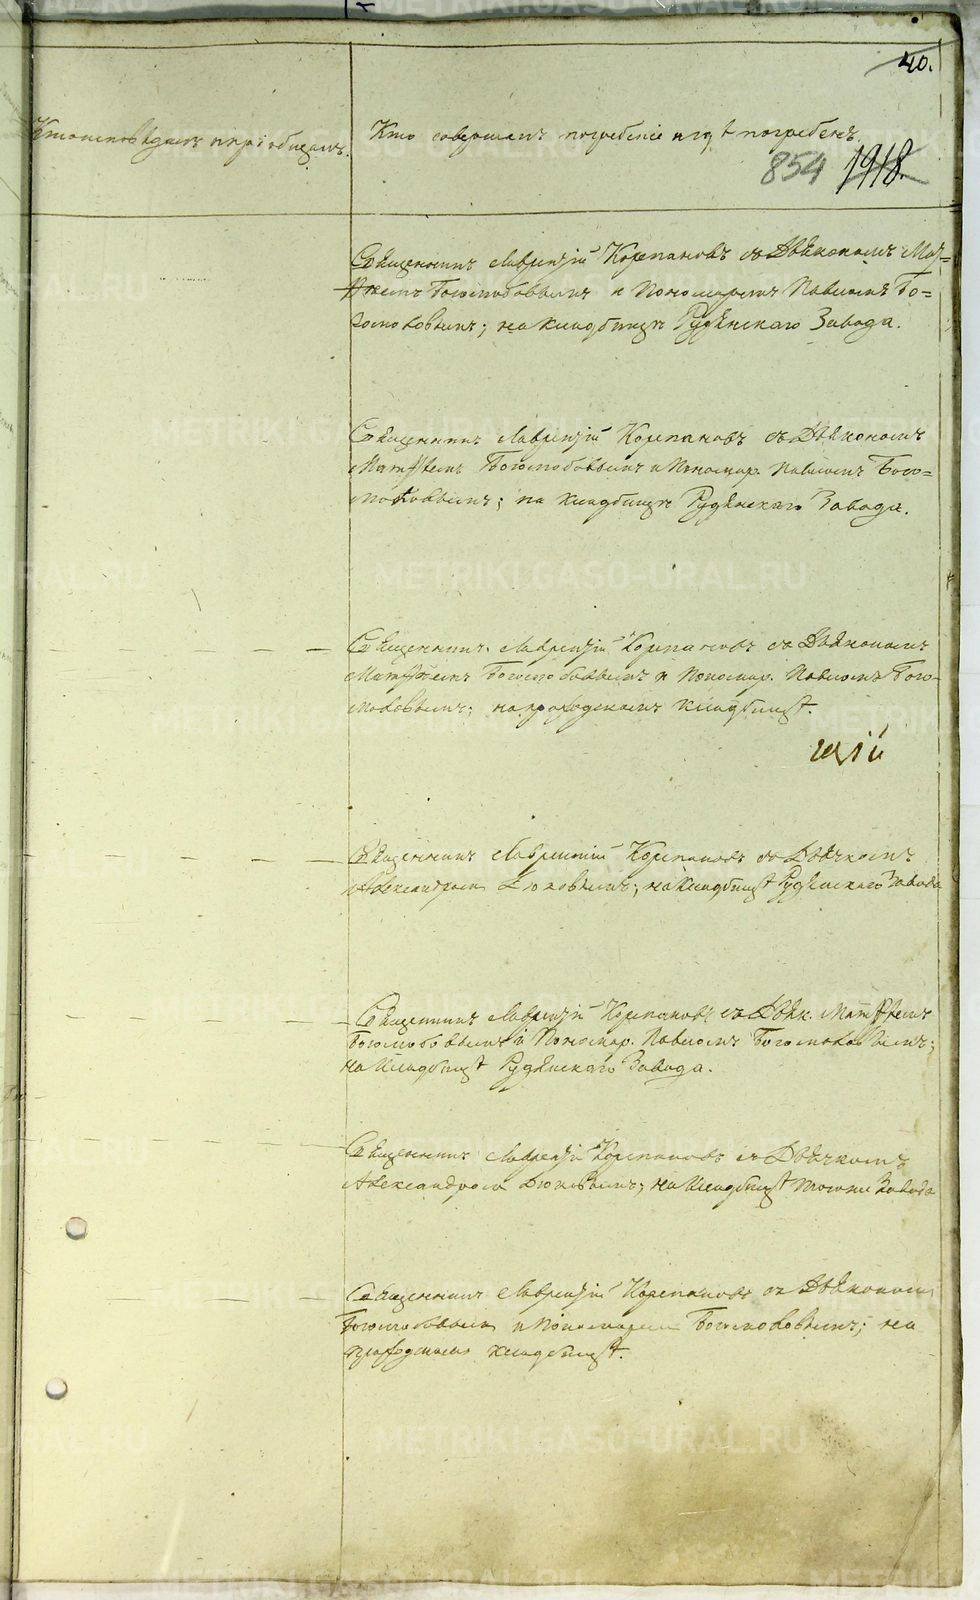 40.
Кто исповѣдалъ и пріобщалъ.
Кто совершалъ погребеніе и гдѣ погребенъ
854 1918.
Священникъ Лаврентій Корепановъ съ Діякономъ Мат-
ѳеемъ Боголюбовымъ и Пономаремъ Павломъ Бо-
гомоловымъ; на кладбищѣ Рудянскаго Завода.
Священникъ Лаврентій Корепановъ съ Діякономъ
Матѳеемъ Боголюбовымъ и Пономар. Павломъ Бого-
моловымъ; на кладбищѣ Рудянскаго Завода.
Священникъ Лаврентій Корепановъ съ Діякономъ
Матѳеемъ Боголюбовымъ и Пономар. Павломъ Бого-
моловымъ; на приходскомъ кладбищѣ.
щій
Священникъ Лаврентій Корепановъ съ Дьячкомъ
Александромъ; на кладбищѣ Рудянскаго Завода
Священникъ Лаврентій Корепановъ съ Діяк. Матѳеемъ
Боголюбовымъ и Пономар. Павломъ Богомоловымъ;
на кладбищѣ Рудянскаго Завода.
Священникъ Лаврентій Корепановъ съ Дьячкомъ
Александромъ; на кладбищѣ тогоже Завода
Священникъ Лаврентій Корепановъ съ Діякономъ
Боголюбовымъ и Пономаремъ Богомоловымъ; на
приходскомъ кладбищѣ.
METRIKI.GASO-URAL.RU